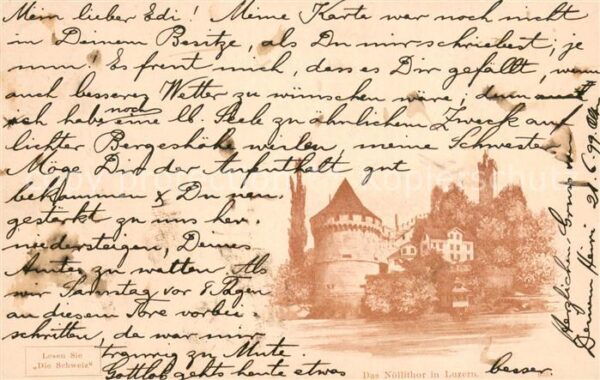 Mein lieber Edi! Meine Karte war noch nicht
in Deinem Besitze, als Du mir schriebest, je
nun! Es freut mich, dass es Dir gefällt, wenn
auch besseres Wetter zu wünschen wäre, denn auch
ich habe noch eine ll. Seele zu ähnlichem Zweck auf
lichter Bergeshöhe weilen, meine Schwester.
Möge Dir der Aufenthalt gut
bekommen & Du neu
gestärkt zu uns her
niedersteigen, Deines
Amtes zu walten. Als
wir Samstag vor 8 Tagen
an diesem Tore vorbei
schritten, da war mir
traurig zu Mute.
Gottlob gehts heute etwas besser.
Herzlichen Gruss
Deinem Heini 21.6.99
Lesen Sie
„Die Schweiz"
Das Nöllithor in Luzern.